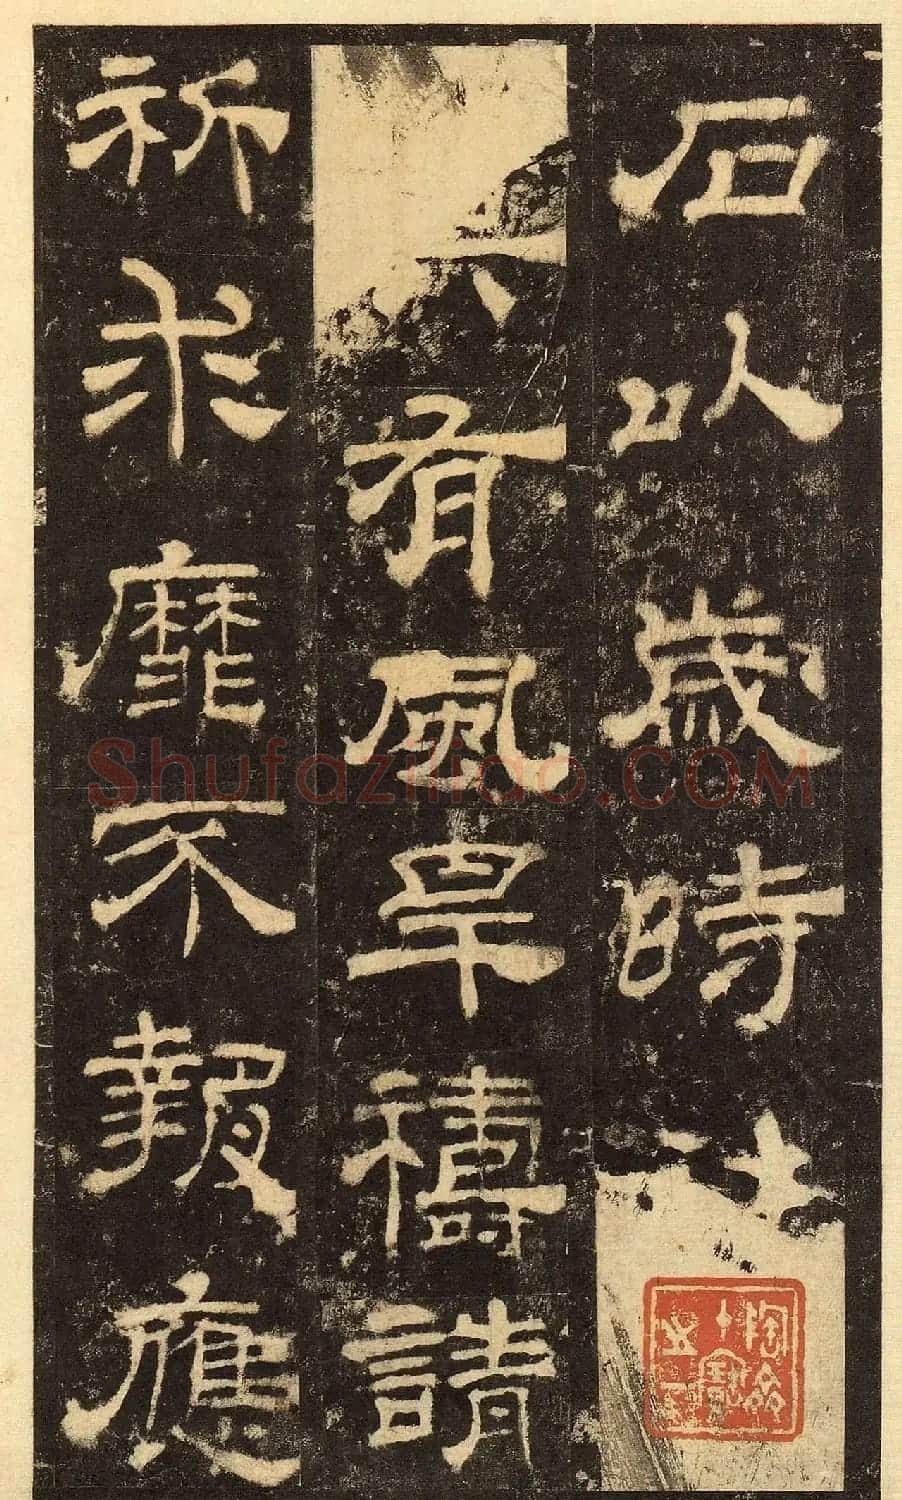 石以歲時
有風旱禱請
祈求靡不報應
Shufaziliao.COM